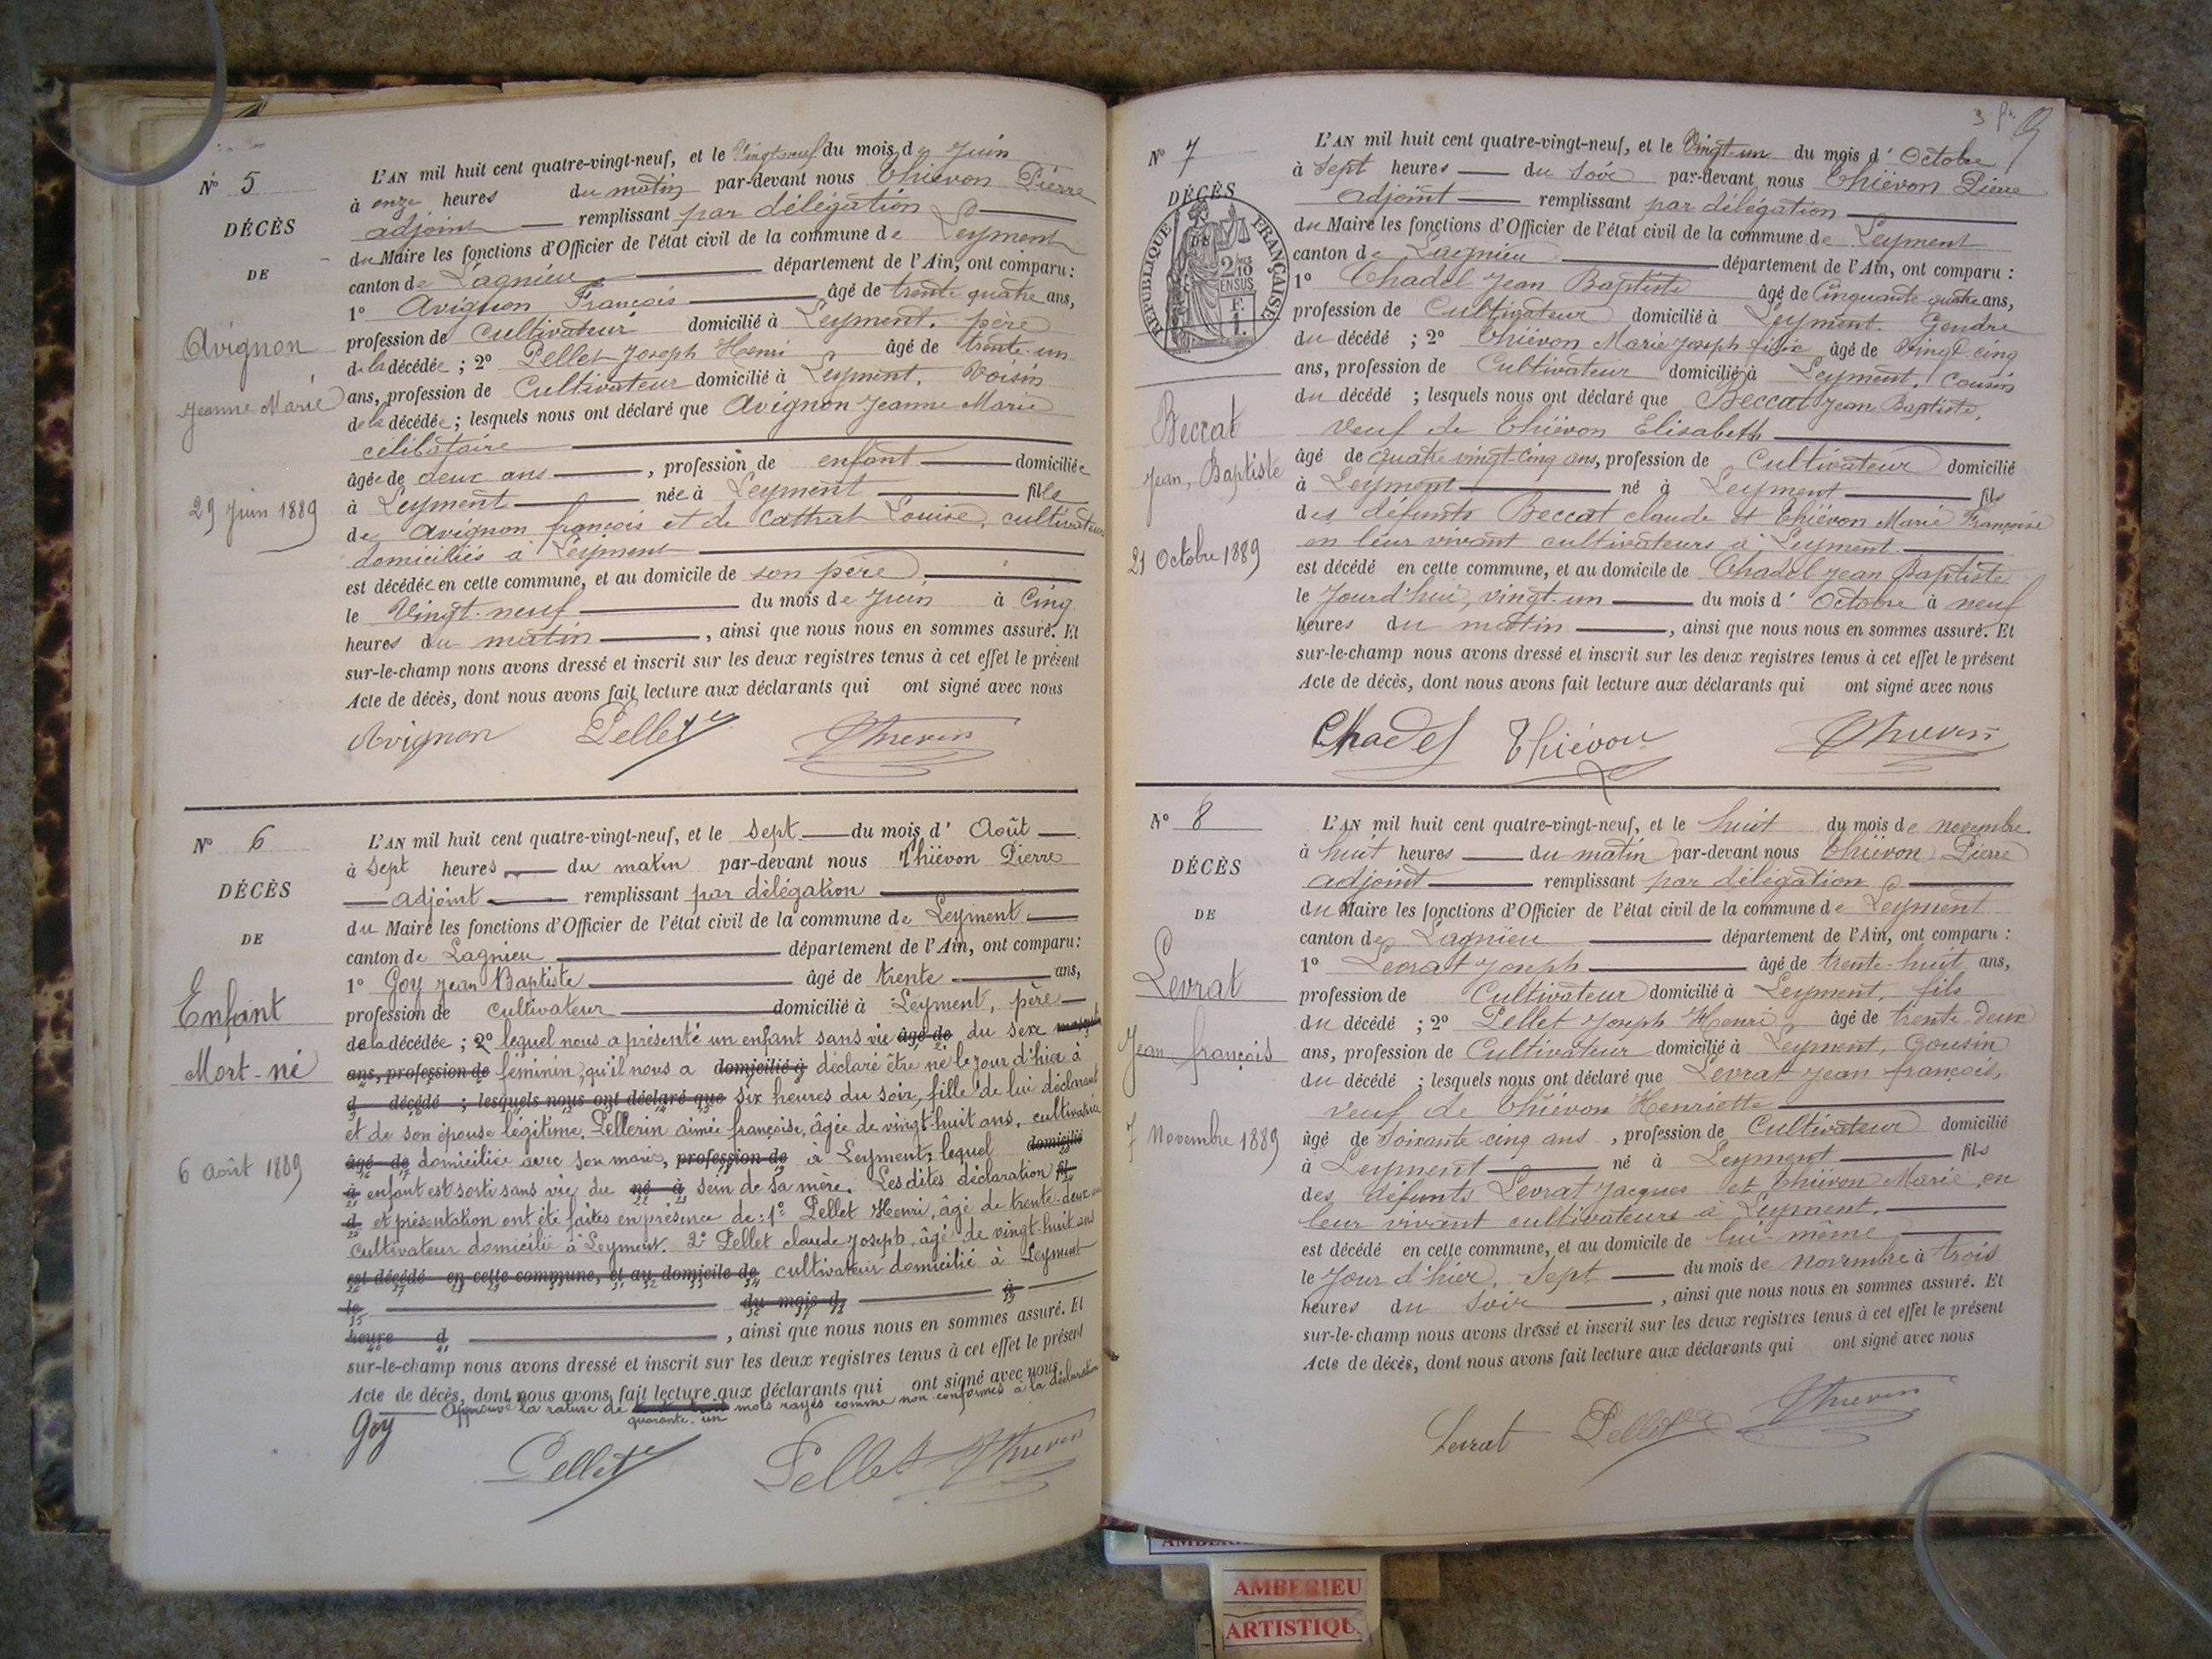 N° 5
DÉCÈS
DE
Avignon
Jeanne Marie
29 Juin 1889
L'AN mil huit cent quatre-vingt-neuf, et le Vingt neuf du mois de Juin
à onze heures du matin par-devant nous Thiévon Pierre
adjoint remplissant par délégation
du Maire les fonctions d'Officier de l'état civil de la commune de Leyment
canton de Lagnieu département de l'Ain, ont comparu :
1° Avignon François âgé de trente quatre ans,
profession de Cultivateur domicilié à Leyment. père
de la décédée ; 2° Pellet Joseph Henri âgé de trente-un
ans, profession de Cultivateur domicilié à Leyment. Voisin
de la décédée ; lesquels nous ont déclaré que Avignon Jeanne Marie
célibataire
âgée de deux ans , profession de enfant domiciliée
à Leyment née à Leyment fille
de Avignon françois et de Cattrat Louise, cultivateurs
domiciliés à Leyment
est décédée en cette commune, et au domicile de son père,
le Vingt-neuf du mois de Juin à Cinq
heures du matin , ainsi que nous nous en sommes assuré. Et
sur-le-champ nous avons dressé et inscrit sur les deux registres tenus à cet effet le présent
Acte de décès, dont nous avons fait lecture aux déclarants qui ont signé avec nous
Avignon Pellet Thievon
N° 6
DÉCÈS
DE
Enfant
Mort-né
6 Août 1889
L'AN mil huit cent quatre-vingt-neuf, et le Sept du mois d' Août
à Sept heures du matin par-devant nous Thiévon Pierre
adjoint remplissant par délégation
du Maire les fonctions d'Officier de l'état civil de la commune de Leyment
canton de Lagnieu département de l'Ain, ont comparu :
1° Goy Jean Baptiste âgé de trente ans,
profession de cultivateur domicilié à Leyment, père
de la décédée ; 2° lequel nous a présenté un enfant sans vie âgé de du sexe
ans, profession de féminin, qu'il nous a domicilié à déclaré être né le jour d'hier à
d décédé ; lesquels nous ont déclaré que six heures du soir, fille de lui déclarant
et de son épouse légitime, Pellerin aimée françoise, âgée de vingt-huit ans, cultivatrice
âgé de domiciliée avec son mari, profession de à Leyment, lequel domicilié
à enfant est sorti sans vie du né à sein de sa mère. Lesdites déclaration fil
d et présentation ont été faites en présence de : 1° Pellet Henri, âgé de trente-deux ans
cultivateur domicilié à Leyment. 2° Pellet claude Joseph, âgé de vingt-huit ans
est décédé en cette commune, et au domicile de cultivateur domicilié à Leyment
le du mois d à
heure d , ainsi que nous nous en sommes assuré. Et
sur-le-champ nous avons dressé et inscrit sur les deux registres tenus à cet effet le présent
Acte de décès, dont nous avons fait lecture aux déclarants qui ont signé avec nous
Approuvé la rature de quarante-un mots rayés comme non conformes à la déclaration
Goy Pellet Pellet Thievon
3 f.
N° 7
DÉCÈS
DE
RÉPUBLIQUE FRANÇAISE
2/10 EN SUS
Beccat
Jean, Baptiste
21 Octobre 1889
L'AN mil huit cent quatre-vingt-neuf, et le Vingt-un du mois d' Octobre
à Sept heures du Soir par-devant nous Thiévon Pierre
adjoint remplissant par délégation
du Maire les fonctions d'Officier de l'état civil de la commune de Leyment
canton de Lagnieu département de l'Ain, ont comparu :
1° Chadel Jean Baptiste âgé de Cinquante-quatre ans,
profession de Cultivateur domicilié à Leyment. Gendre
du décédé ; 2° Thiévon Marie Joseph félix âgé de Vingt cinq
ans, profession de Cultivateur domicilié à Leyment. Cousin
du décédé ; lesquels nous ont déclaré que Beccat Jean Baptiste,
Veuf de Thiévon Elisabeth
âgé de quatre vingt-cinq ans, profession de Cultivateur domicilié
à Leyment né à Leyment fils
des défunts Beccat claude et Thiévon Marie Françoise
en leur vivant cultivateurs à Leyment.
est décédé en cette commune, et au domicile de Chadel Jean Baptiste
le Jourd'hui, vingt-un du mois d' Octobre à neuf
heures du matin , ainsi que nous nous en sommes assuré. Et
sur-le-champ nous avons dressé et inscrit sur les deux registres tenus à cet effet le présent
Acte de décès, dont nous avons fait lecture aux déclarants qui ont signé avec nous
Chadel Thiévon Thievon
N° 8
DÉCÈS
DE
Levrat
Jean françois
7 Novembre 1889
L'AN mil huit cent quatre-vingt-neuf, et le huit du mois de novembre
à huit heures du matin par-devant nous Thiévon Pierre
adjoint remplissant par délégation
du Maire les fonctions d'Officier de l'état civil de la commune de Leyment
canton de Lagnieu département de l'Ain, ont comparu :
1° Levrat Joseph âgé de trente-huit ans,
profession de Cultivateur domicilié à Leyment, fils
du décédé ; 2° Pellet Joseph Henri, âgé de trente-deux
ans, profession de Cultivateur domicilié à Leyment, Cousin
du décédé ; lesquels nous ont déclaré que Levrat Jean françois,
veuf de Thiévon Henriette
âgé de Soixante-cinq ans , profession de Cultivateur domicilié
à Leyment né à Leyment fils
des défunts Levrat Jacques et Thiévon Marie, en
leur vivant cultivateurs à Leyment.
est décédé en cette commune, et au domicile de lui même
le Jour d'hier, Sept du mois de Novembre à trois
heures du Soir , ainsi que nous nous en sommes assuré. Et
sur-le-champ nous avons dressé et inscrit sur les deux registres tenus à cet effet le présent
Acte de décès, dont nous avons fait lecture aux déclarants qui ont signé avec nous
Levrat Pellet Thievon
AMBERIEU
ARTISTIQU